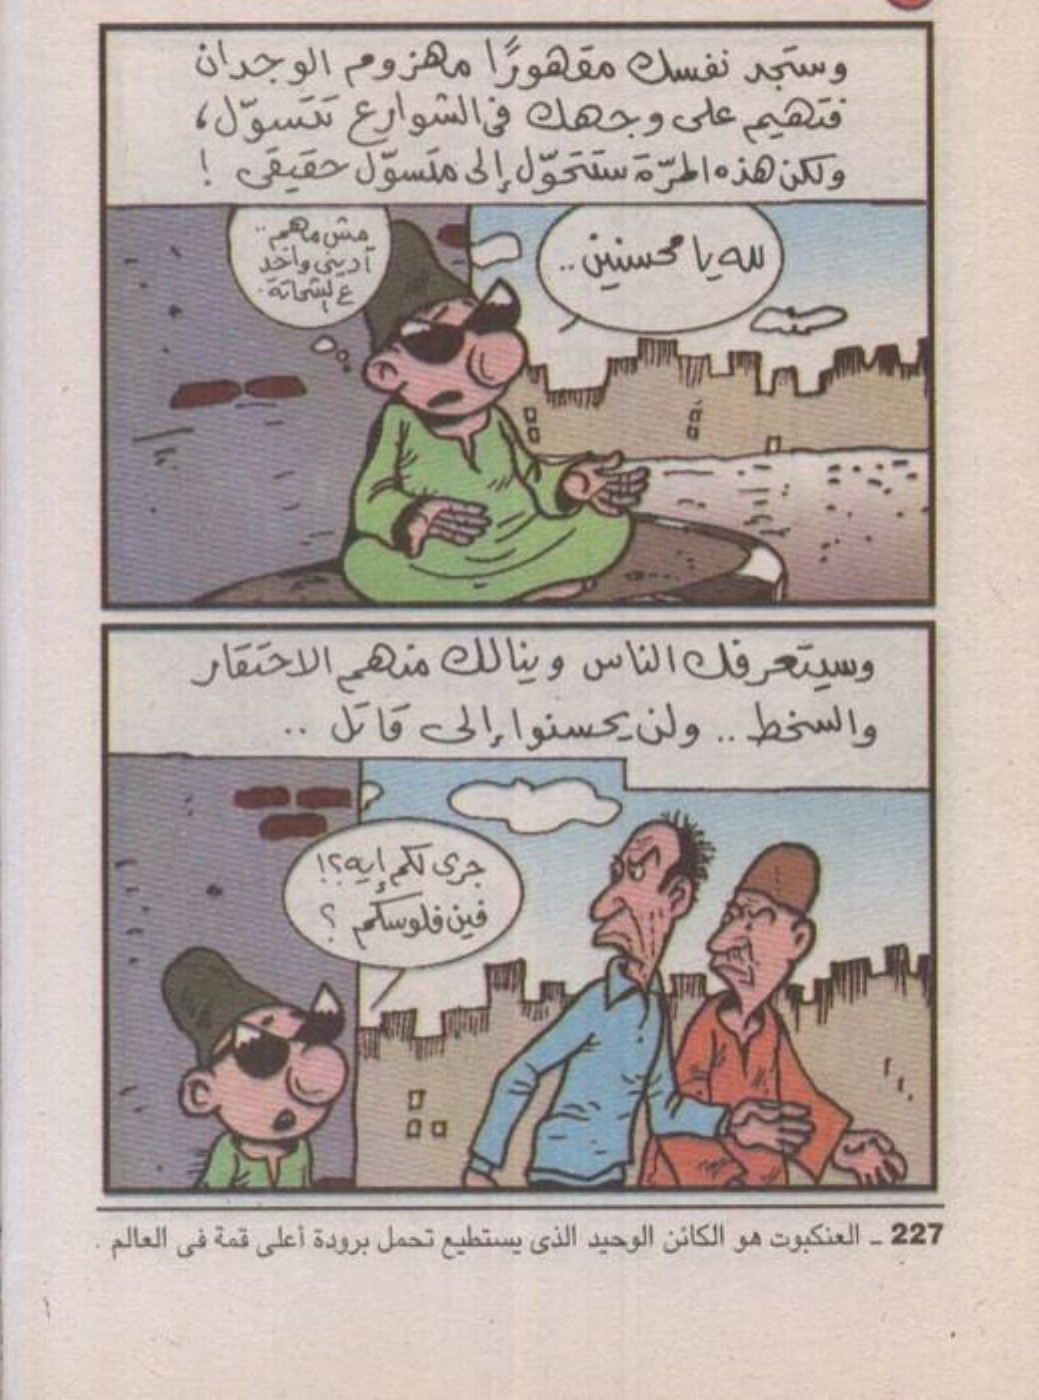 وستجد نفسك مقهورًا مهزوم الوجدان
فتهيم على وجهك فى الشوارع تتسوّل،
ولكن هذه المرّة ستتحوّل إلى متسوّل حقيقى !
لله يا محسنين ..
مش مهم ..
آدينى واخد
ع الشحاتة .
وسيتعرفك الناس وينالك منهم الاحتقار
والسخط .. ولن يحسنوا إلى قاتل ..
جرى لكم إيه؟!
فين فلوسكم ؟
227 ـ العنكبوت هو الكائن الوحيد الذى يستطيع تحمل برودة أعلى قمة فى العالم .